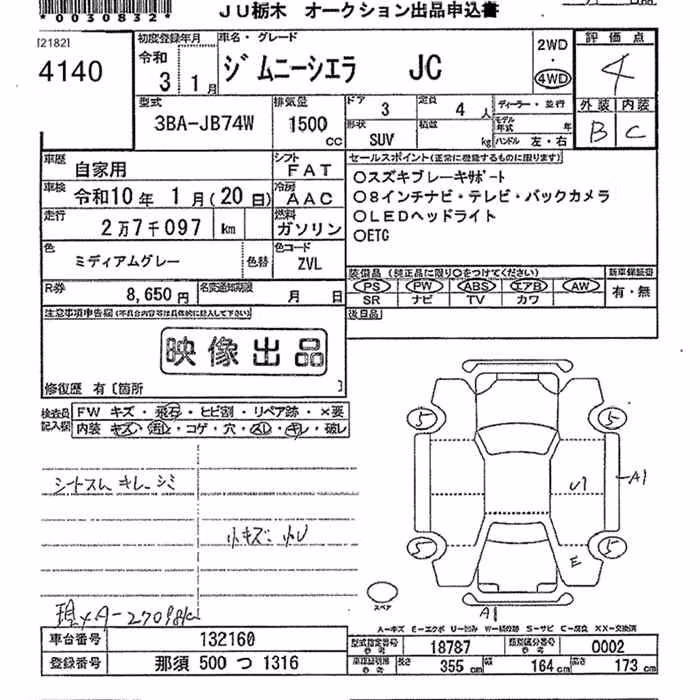 *0030832*
JU栃木 オークション出品申込書
[2182]
4140
初度登録年月
令和
3 1月
車名・グレード
ジムニーシエラ JC
2WD
・
4WD
評価点
4
外装 内装
B C
型式
3BA-JB74W
排気量
1500
cc
ドア
3
定員
4 人
形状
SUV
積載
kg
ディーラー・並行
モデル年式 年
ハンドル 左・右
車歴
自家用
シフト
FAT
車検
令和10年 1月(20日)
冷房
AAC
走行
2万7千097 km
燃料
ガソリン
色
ミディアムグレー
色替
色コード
ZVL
セールスポイント(正常に機能するものに限ります)
○スズキブレーキサポート
○8インチナビ・テレビ・バックカメラ
○LEDヘッドライト
○ETC
R券
8,650円
名変通知期限
月 日
装備品(純正品に限り○をつけてください)
PS PW ABS エアB AW
SR ナビ TV カワ
新車保証書
有・無
後日品
注意事項申告欄(不具合内容等は具体的に記入して下さい)
映像出品
修復歴 有〔箇所 〕
検査員記入欄
FW キズ・飛石・ヒビ割・リペア跡・×要
内装 キズ・汚レ・コゲ・穴・スレ・キレ・破レ
シートスレ キレ シミ
小キズ、小U
現メーター27098km
5
5
5
5
A1
U1
E
A1
スペア
A-キズ E-エクボ U-凹み W-補修跡 S-サビ C-腐食 XX-交換済
車台番号
132160
登録番号
那須 500 つ 1316
型式指定番号
参考
18787
類別区分番号
参考
0002
車両登録寸法
参考
長さ
355 cm
幅
164 cm
高さ
173 cm